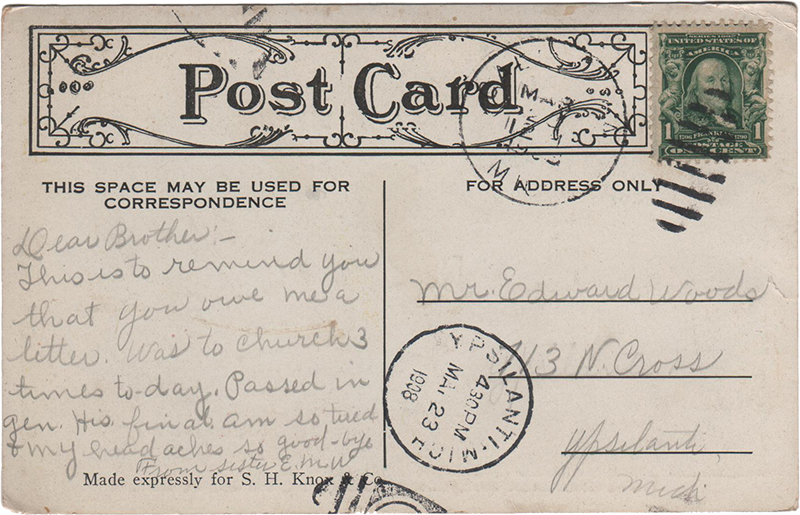 Post Card
SERIES 1902
UNITED STATES OF
AMERICA
1 FRANKLIN 1
POSTAGE
ONE CENT
THIS SPACE MAY BE USED FOR
CORRESPONDENCE
FOR ADDRESS ONLY
Dear Brother:-
This is to remind you
that you owe me a
letter. Was to church 3
times to-day. Passed in
gen. His. final. am so tired
& my head aches so good-bye
From sister E.M.W
Mr. Edward Woods
N. Cross
Ypsilanti,
Mich
YPSILANTI-MICH
430PM
23
1908
Made expressly for S. H. Knox & Co